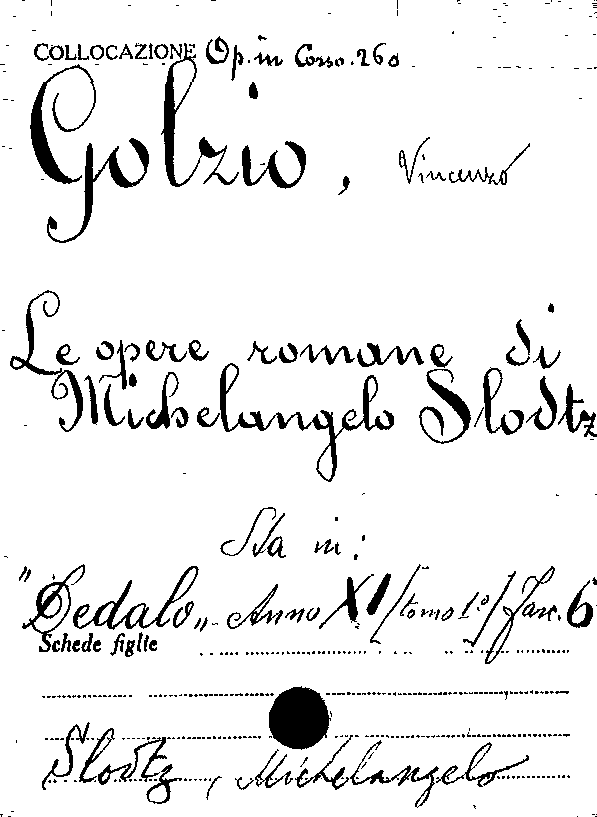 COLLOCAZIONE Op. in Corso. 260
Golzio, Vincenzo
Le opere romane di
Michelangelo Slodtz
Sta in:
"Dedalo„ Anno XI/(tomo 1º)/Fasc. 6
Schede figlie
Slodtz, Michelangelo